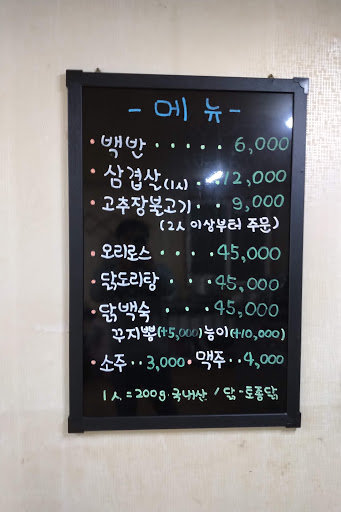 - 메뉴 -
• 백반 ····· 6,000
• 삼겹산(1人) ·· 12,000
• 고추장불고기 ·· 9,000
(2人 이상부터 주문)
• 오리로스 ···· 45,000
• 닭도리탕 ···· 45,000
• 닭백숙 ···· 45,000
꾸지뽕(+5,000) 능이(+10,000)
• 소주 ·· 3,000 • 맥주 ·· 4,000
1人 = 200g · 국내산 / 닭 - 토종닭